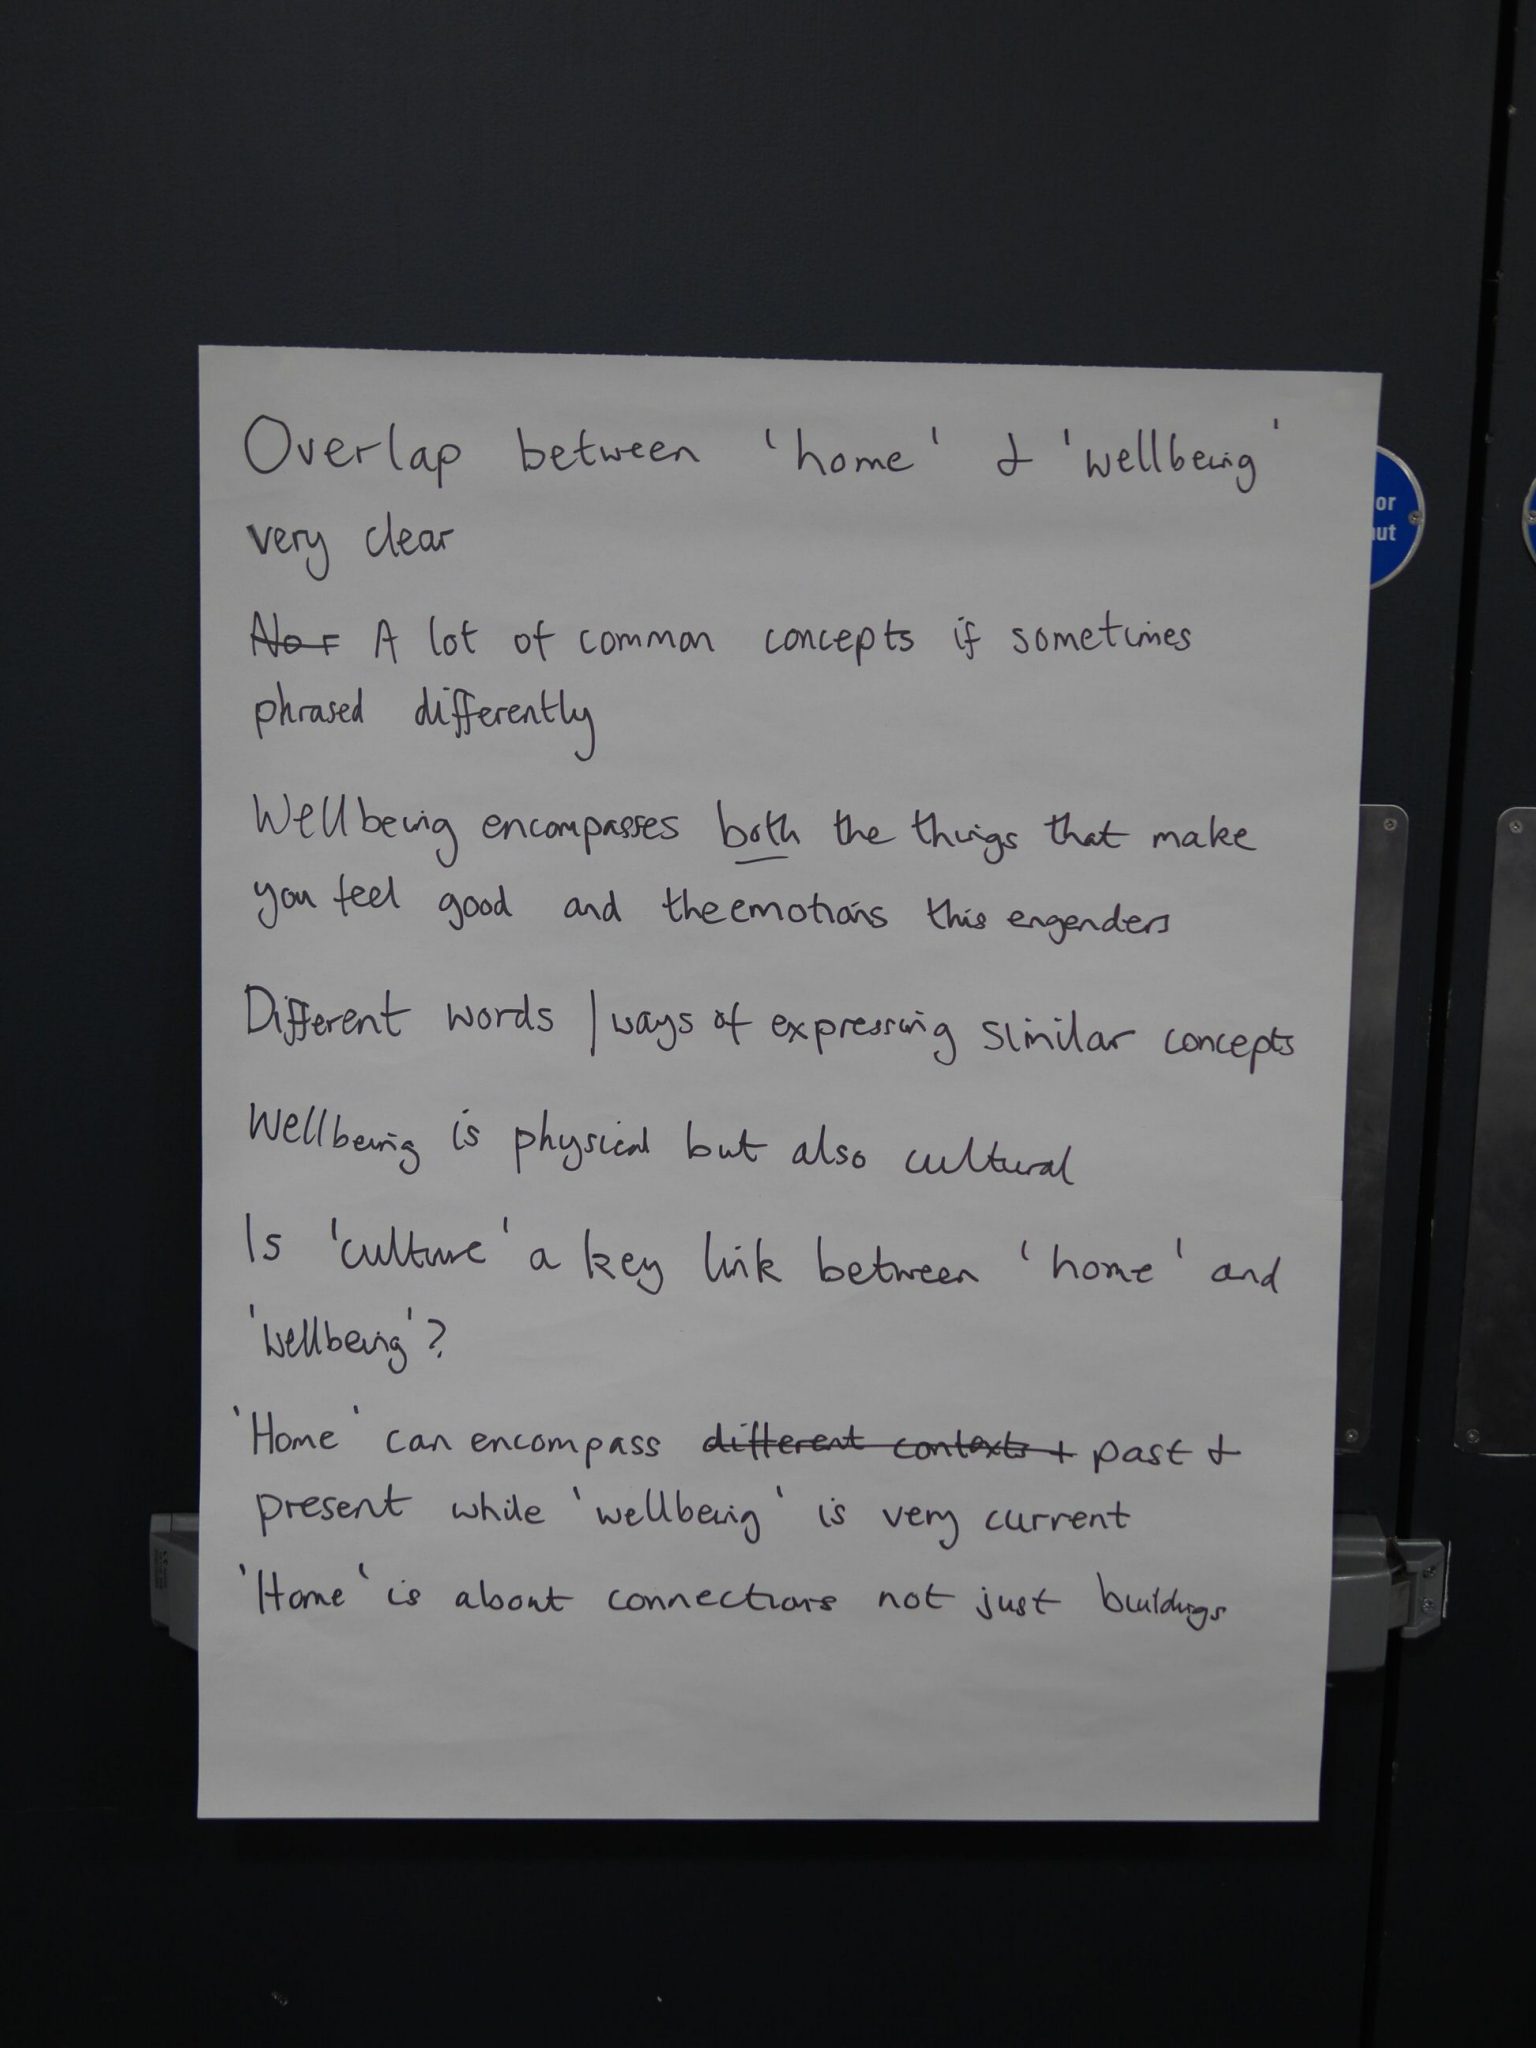 Overlap between 'home' & 'wellbeing'
very clear
A lot of common concepts if sometimes
phrased differently
Wellbeing encompasses both the things that make
you feel good and the emotions this engenders
Different words / ways of expressing similar concepts
Wellbeing is physical but also cultural
Is 'culture' a key link between 'home' and
'wellbeing'?
'Home' can encompass different contexts + past &
present while 'wellbeing' is very current
'Home' is about connections not just buildings
or